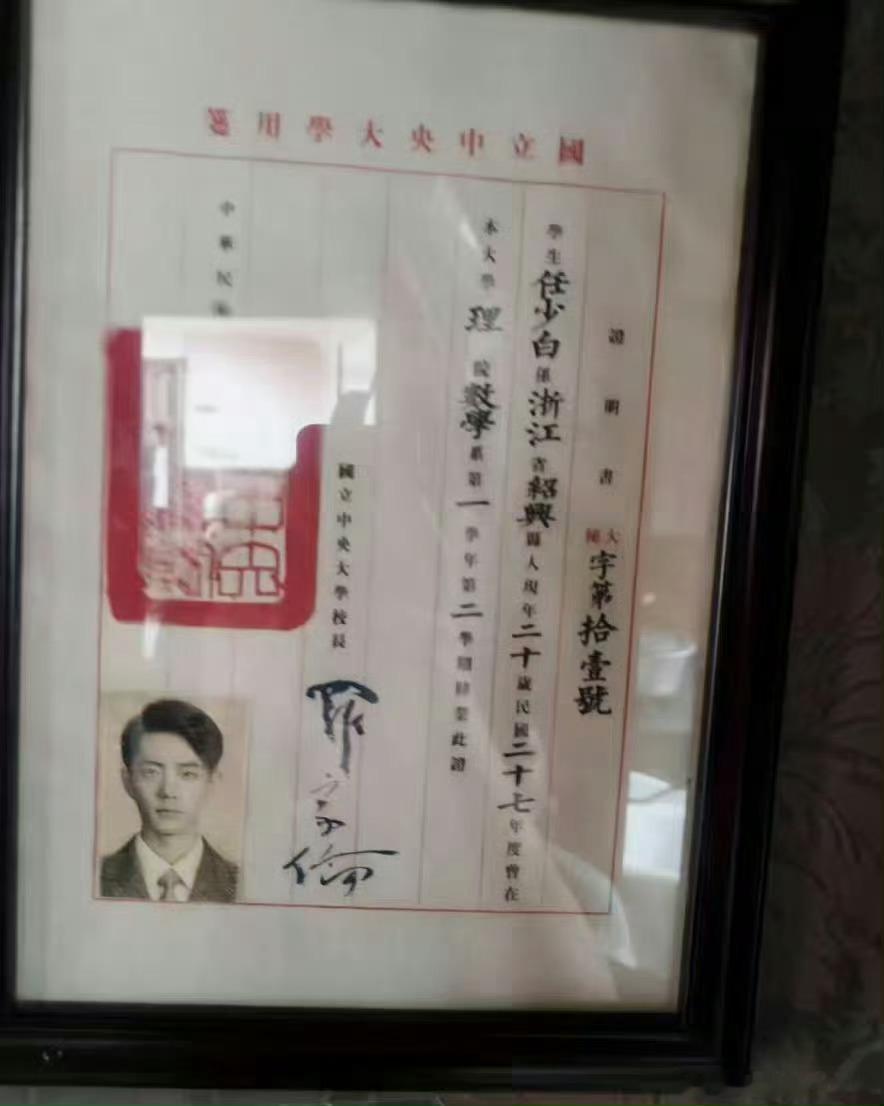 國立中央大學用箋
證明書 大字第拾壹號
學生任少白係浙江省紹興縣人現年二十歲民國二十七年度曾在
本大學理院數學系第一學年第二學期肄業此證
國立中央大學校長 羅家倫
中華民